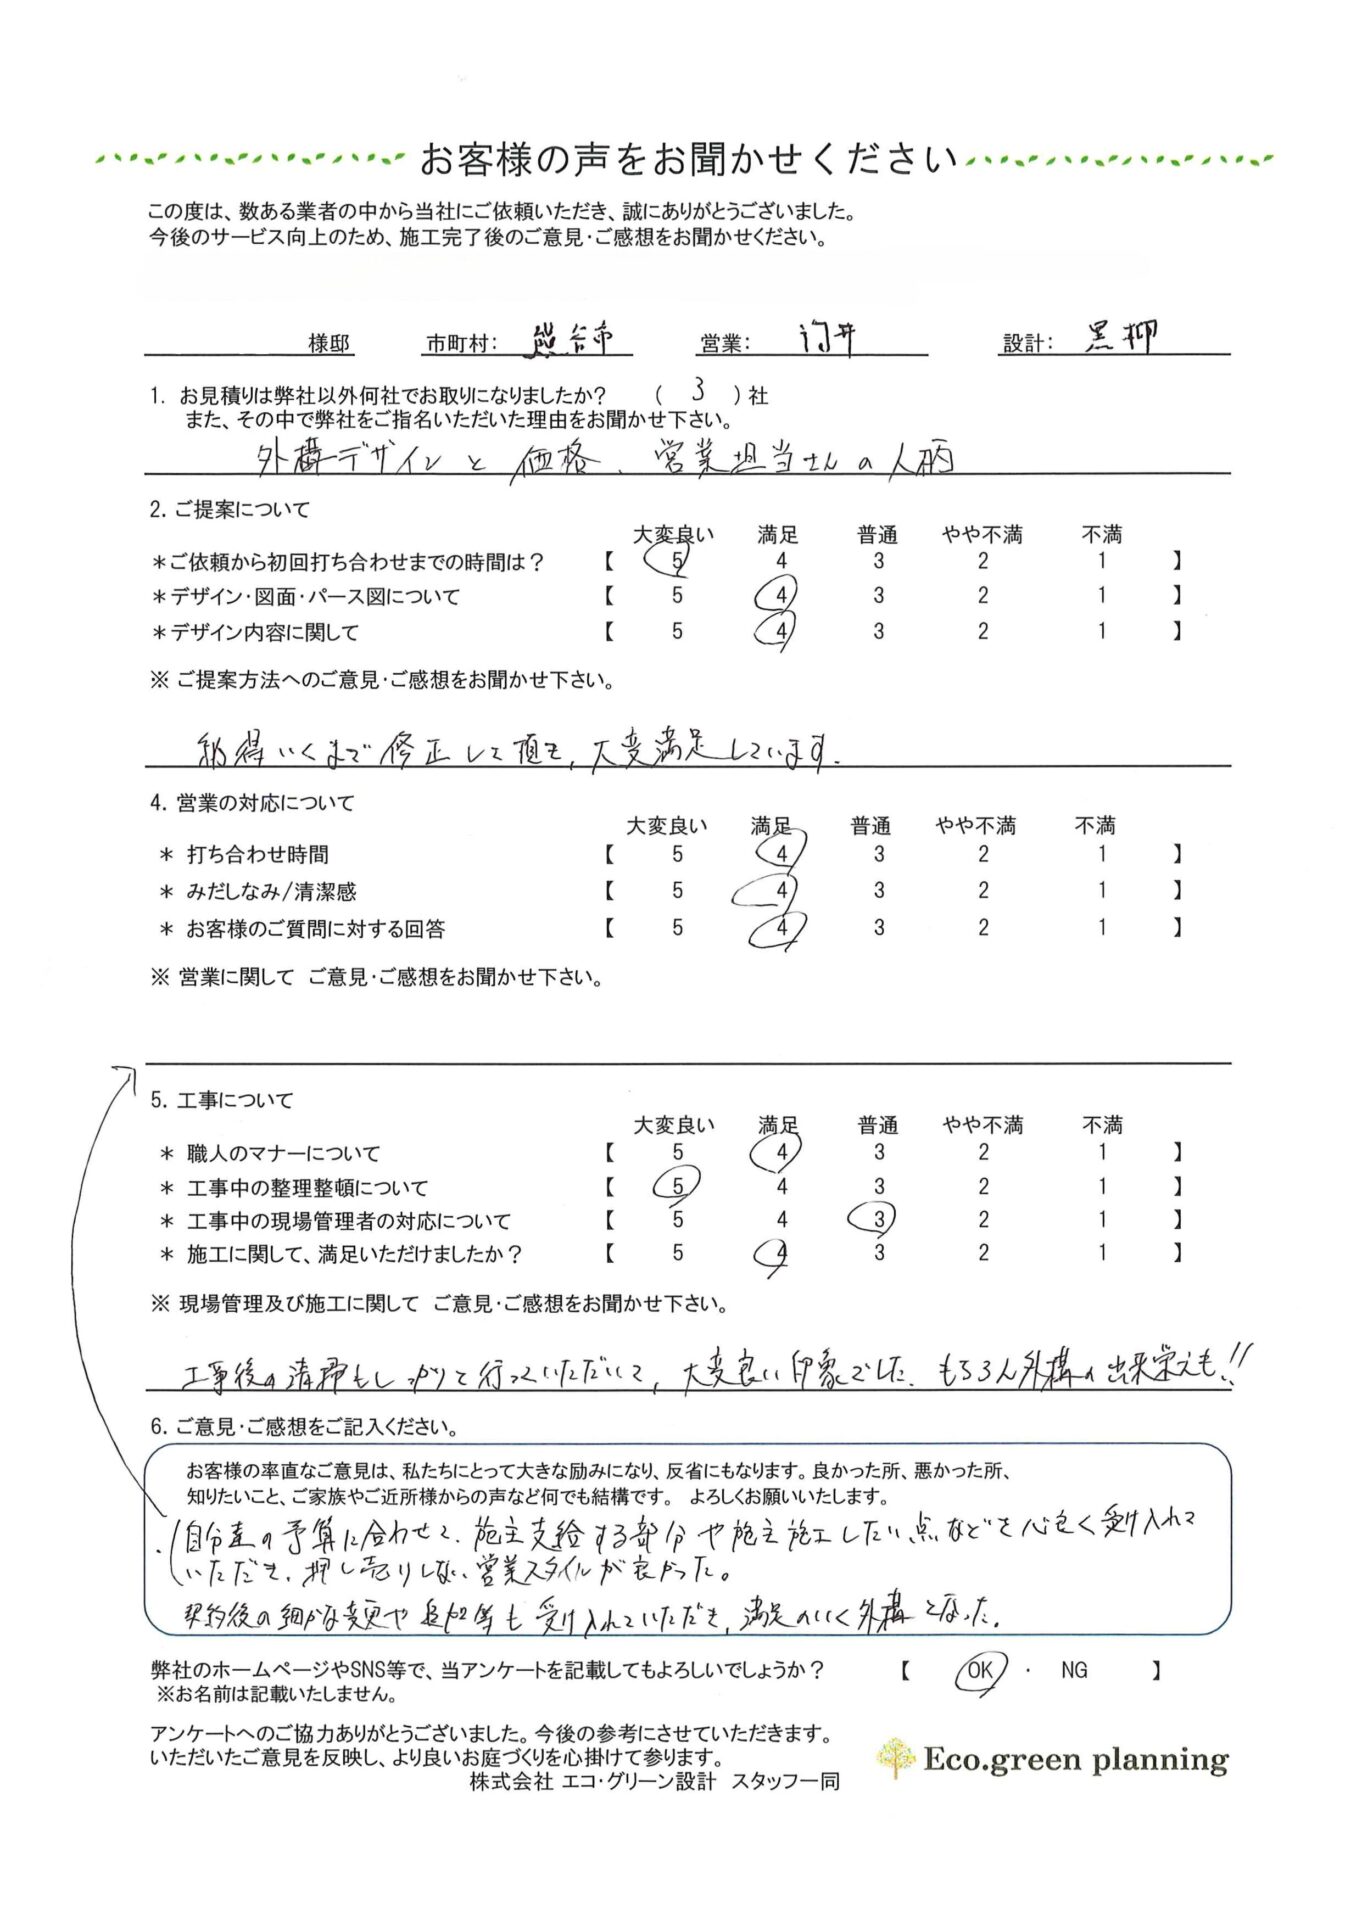 お客様の声をお聞かせください
この度は、数ある業者の中から当社にご依頼いただき、誠にありがとうございました。
今後のサービス向上のため、施工完了後のご意見・ご感想をお聞かせください。
様邸 市町村： 熊谷市 営業： 門井 設計： 黒柳
1. お見積りは弊社以外何社でお取りになりましたか？ （ 3 ）社
また、その中で弊社をご指名いただいた理由をお聞かせ下さい。
外構デザインと価格、営業担当さんの人柄
2. ご提案について
大変良い 満足 普通 やや不満 不満
＊ご依頼から初回打ち合わせまでの時間は？ 【 5 4 3 2 1 】
＊デザイン・図面・パース図について 【 5 4 3 2 1 】
＊デザイン内容に関して 【 5 4 3 2 1 】
※ ご提案方法へのご意見・ご感想をお聞かせ下さい。
納得いくまで修正して頂き、大変満足しています。
4. 営業の対応について
大変良い 満足 普通 やや不満 不満
＊ 打ち合わせ時間 【 5 4 3 2 1 】
＊ みだしなみ/清潔感 【 5 4 3 2 1 】
＊ お客様のご質問に対する回答 【 5 4 3 2 1 】
※ 営業に関して ご意見・ご感想をお聞かせ下さい。
5. 工事について
大変良い 満足 普通 やや不満 不満
＊ 職人のマナーについて 【 5 4 3 2 1 】
＊ 工事中の整理整頓について 【 5 4 3 2 1 】
＊ 工事中の現場管理者の対応について 【 5 4 3 2 1 】
＊ 施工に関して、満足いただけましたか？ 【 5 4 3 2 1 】
※ 現場管理及び施工に関して ご意見・ご感想をお聞かせ下さい。
工事後の清掃もしっかりと行っていただいて、大変良い印象でした。もちろん外構の出来栄えも!!
6. ご意見・ご感想をご記入ください。
お客様の率直なご意見は、私たちにとって大きな励みになり、反省にもなります。良かった所、悪かった所、
知りたいこと、ご家族やご近所様からの声など何でも結構です。 よろしくお願いいたします。
・自分達の予算に合わせて、施主支給する部分や施主施工したい点などを心良く受け入れて
いただき、押し売りしない営業スタイルが良かった。
契約後の細かな変更や追加等も受け入れていただき、満足のいく外構となった。
弊社のホームページやSNS等で、当アンケートを記載してもよろしいでしょうか？ 【 OK ・ NG 】
※お名前は記載いたしません。
アンケートへのご協力ありがとうございました。今後の参考にさせていただきます。
いただいたご意見を反映し、より良いお庭づくりを心掛けて参ります。
株式会社 エコ・グリーン設計 スタッフ一同
Eco.green planning